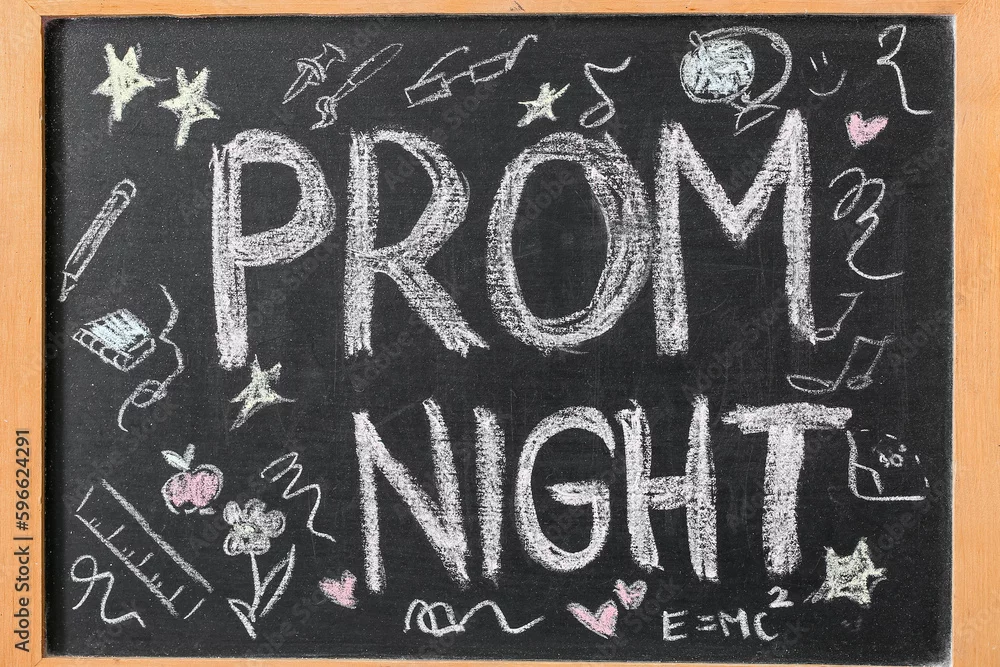 PROM
NIGHT
90°
E=MC²
Adobe Stock | #596624291